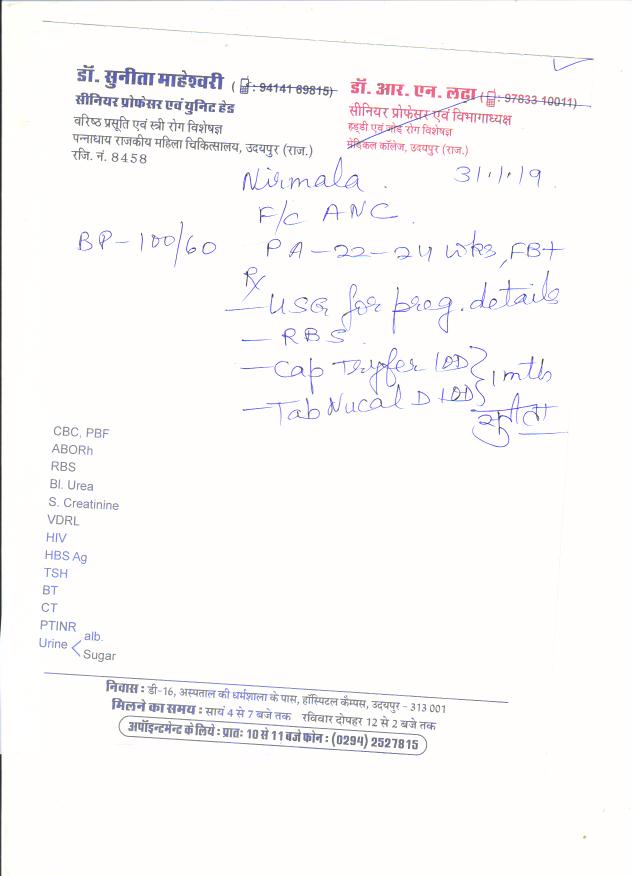 डॉ. सुनीता माहेश्वरी ( : 94141 69815)
सीनियर प्रोफेसर एवं युनिट हेड
वरिष्ठ प्रसूति एवं स्त्री रोग विशेषज्ञ
पन्नाधाय राजकीय महिला चिकित्सालय, उदयपुर (राज.)
रजि. नं. 8458
डॉ. आर. एन. लढ़ा ( : 97833 10011)
सीनियर प्रोफेसर एवं विभागाध्यक्ष
हड्डी एवं जोड़ रोग विशेषज्ञ
मेडिकल कॉलेज, उदयपुर (राज.)
Nirmala. 31.1.19
F/C ANC.
BP-100/60 PA-22-24 wks, FB+
Rx
- USG for preg. details
- RBS.
- Cap 1OD } 1 mth
- Tab Nucal D 1OD }
सुनीता
CBC, PBF
ABORh
RBS
Bl. Urea
S. Creatinine
VDRL
HIV
HBS Ag
TSH
BT
CT
PTINR
Urine < alb.
Sugar
निवास : डी-16, अस्पताल की धर्मशाला के पास, हॉस्पिटल कैम्पस, उदयपुर - 313 001
मिलने का समय : सायं 4 से 7 बजे तक रविवार दोपहर 12 से 2 बजे तक
अपॉइन्टमेन्ट के लिये : प्रातः 10 से 11 बजे फोन : (0294) 2527815